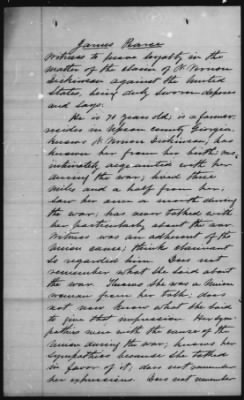 James Pearce
Witness to prove loyalty in the
matter of the claim of N. Vernon
Dickinson against the United
States, being duly sworn deposes
and says:
He is 70 years old; is a farmer
resides in Upson county Georgia.
knows N Vernon Dickinson; has
known her from her birth; was
intimately acquainted with her
during the war; lived three
miles and a half from her;
saw her once a month during
the war; has never talked with
her particularly about the war.
Witness was an adherent of the
Union cause; think claimant
so regarded him. Does not
remember what she said about
the war. Knows she was a Union
woman from her talk; does
not now know what she said
to give that impression. Her sym-
pathies were with the cause of the
Union during the war; knows her
sympathies because she talked
in favor of it; does not remember
her expressions. Does not remember